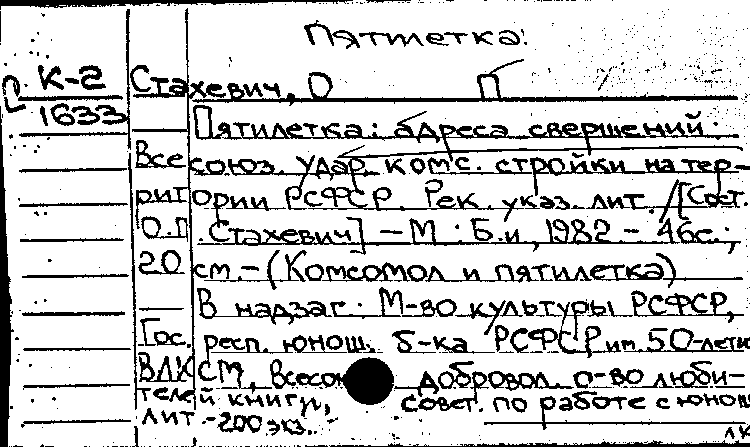 Пятилетка:
К-2 Стахевич, О П
1633
Пятилетка: адреса свершений:
Всесоюз. удар. комс. стройки на тер-
ритории РСФСР. Рек. указ. лит. /[Сост.
О.П. Стахевич] – М : Б.и, 1982 – 46с.;
20 см. – (Комсомол и пятилетка)
В надзаг: М-во культуры РСФСР,
Гос. респ. юнош. б-ка РСФСР им. 50-лети
ВЛКСМ, Всесою добровол. о-во люби-
телей книги, совет. по работе с юнош
лит – 200 экз.